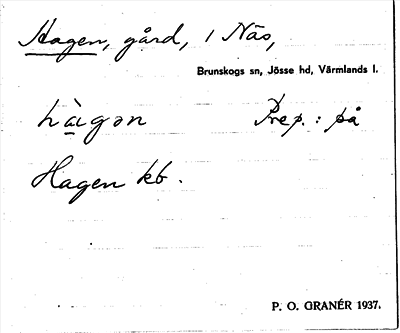 Hagen, gård, 1 Näs,
Brunskogs sn, Jösse hd, Värmlands l.
hàgən Prep.: på
Hagen kb.
P. O. GRANÉR 1937.